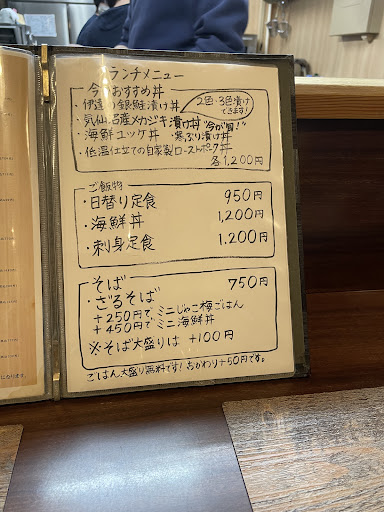 ランチメニュー
今のおすすめ丼
・伊達の銀鮭漬け丼
2色・3色漬け
できます!
・気仙沼産メカジキ漬け丼 "今が旬!"
・海鮮ユッケ丼 ・寒ぶり漬け丼
・低温仕立ての自家製ローストポーク丼
各1,200円
ご飯物
・日替り定食 950円
・海鮮丼 1,200円
・刺身定食 1.200円
そば 750円
・ざるそば
+250円で ミニじゃこ梅ごはん
+450円で ミニ海鮮丼
※そば大盛りは +100円
ごはん大盛り無料です!おかわり+50円です。